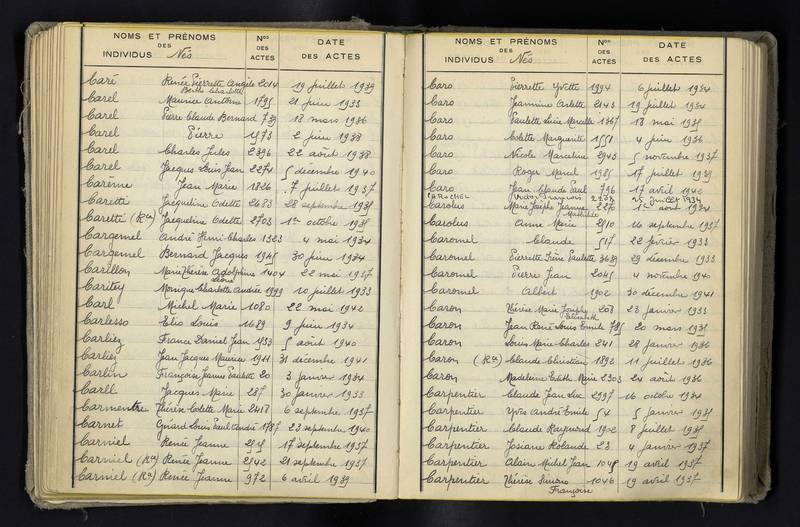 NOMS ET PRÉNOMS
DES
INDIVIDUS Nés
Nos
DES
ACTES
DATE
DES ACTES
Caré Renée Pierrette Angèle 2014 19 juillet 1939
Berthe Charlotte
Carel Maurice Antoine 1795 21 juin 1933
Carel Pierre Claude Bernard 739 18 mars 1936
Carel Pierre 1473 2 juin 1938
Carel Charles Jules 2396 22 août 1938
Carel Jacques Louis Jean 2274 5 décembre 1940
Carême Jean Marie 1836 7 juillet 1937
Caretti Jacqueline Odette 2683 28 septembre 1935
Caretti (Ron) Jacqueline Odette 2703 1er octobre 1935
Cargemel André Henri Charles 1323 4 mai 1934
Cargemel Bernard Jacques 1945 30 juin 1934
Carillon Marie Thérèse Adolphine 1404 22 mai 1937
Caritey Monique Charlotte Andrée 1999 10 juillet 1933
Carl Michel Marie 1080 22 mai 1942
Carlesso Elio Louis 1689 9 juin 1934
Carliez France Daniel Jean 1433 5 août 1940
Carliez Jean Jacques Maurice 1911 31 décembre 1941
Carlin Françoise Jeanne Paulette 20 3 janvier 1934
Carll Jacques Marie 287 30 janvier 1933
Carmentre Thérèse Odette Marie 2418 6 septembre 1937
Carnet Gérard Louis Paul André 1787 23 septembre 1940
Carniel Renée Jeanne 17 septembre 1937
Carniel (Ron) Renée Jeanne 2542 21 septembre 1937
Carniel (Ron) Renée Jeanne 972 6 avril 1939
NOMS ET PRÉNOMS
DES
INDIVIDUS Nés
Nos
DES
ACTES
DATE
DES ACTES
Caro Pierrette Yvette 1994 6 juillet 1934
Caro Jeannine Arlette 2143 19 juillet 1934
Caro Paulette Lucie Marcelle 1367 18 mai 1935
Caro Colette Marguerite 1551 4 juin 1936
Caro Nicole Marceline 2943 5 novembre 1937
Caro Roger Marcel 1985 17 juillet 1939
Caro Jean Claude Paul 796 17 avril 1942
Carochel Victor François 2238 25 juillet 1934
Carolus Marie Josèphe Jeanne 2270 1er août 1934
Mathilde
Carolus Anne Marie 2510 16 septembre 1937
Caromel Claude 517 22 février 1933
Caromel Pierrette Irène Paulette 3689 29 décembre 1933
Caromel Pierre Jean 2045 4 novembre 1940
Caromel Albert 1902 30 décembre 1941
Caron Thérèse Marie Josèphe 208 23 janvier 1933
Elisabeth
Caron Jean René Louis Emile 785 20 mars 1935
Caron Louis Marie Charles 241 28 janvier 1936
Caron (Ron) Claude Christian 1892 11 juillet 1936
Caron Madeleine Edith Marie 2303 24 août 1936
Carpentier Claude Jean Luc 2997 16 octobre 1934
Carpentier Yves André Emile 54 5 janvier 1935
Carpentier Claude Raymond 1902 8 juillet 1935
Carpentier Josiane Rolande 23 4 janvier 1937
Carpentier Alain Michel Jean 1045 19 avril 1937
Carpentier Thérèse Simone 1046 19 avril 1937
Françoise